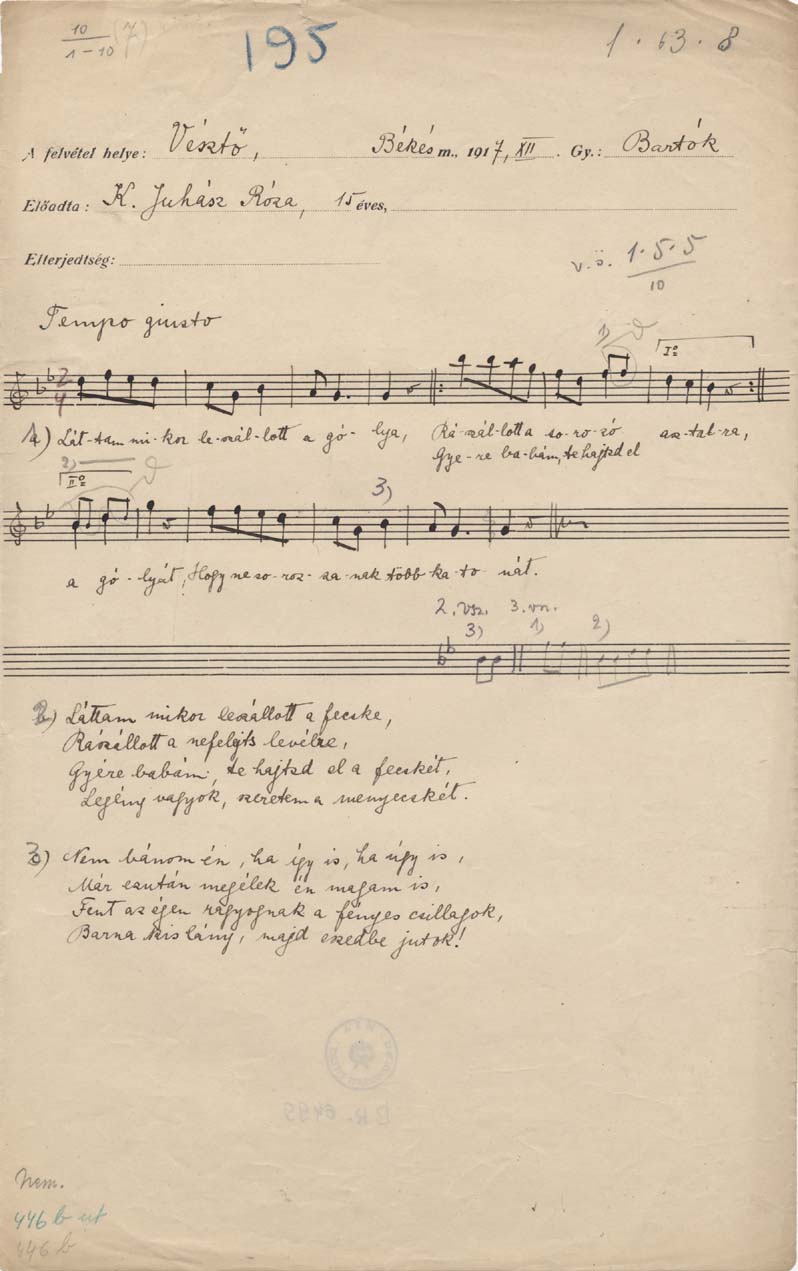 10
1-10 (7)
195
1 . 63 . 8
A felvétel helye: Vésztő, Békés m., 1917, XII. Gy.: Bartók
Előadta: K. Juhász Róza, 15 éves,
Elterjedtség:
v. ö. 1. 5. 5
10
Tempo giusto
1)
Iº
2
4
1.) Lát-tam mi-kor le-szál-lott a gó-lya, Rá-szál-lott a so-ro-zó asz-tal-ra,
Gye-re ba-bám, te hajtsd el
2)
IIº
3)
a gó-lyát, Hogy ne so-roz-za-nak több ka-to-nát.
2. vsz. 3. vsz.
3) 1) 2)
2.) Láttam mikor leszállott a fecske,
Rászállott a nefelejts levélre,
Gyére babám, te hajtsd el a fecskét,
Legény vagyok, szeretem a menyecskét.
3.) Nem bánom én, ha így is, ha úgy is,
Már ezután megélek én magam is,
Fent az égen ragyognak a fényes csillagok,
Barna kislány, majd eszedbe jutok!
Nem.
446 b
446 b